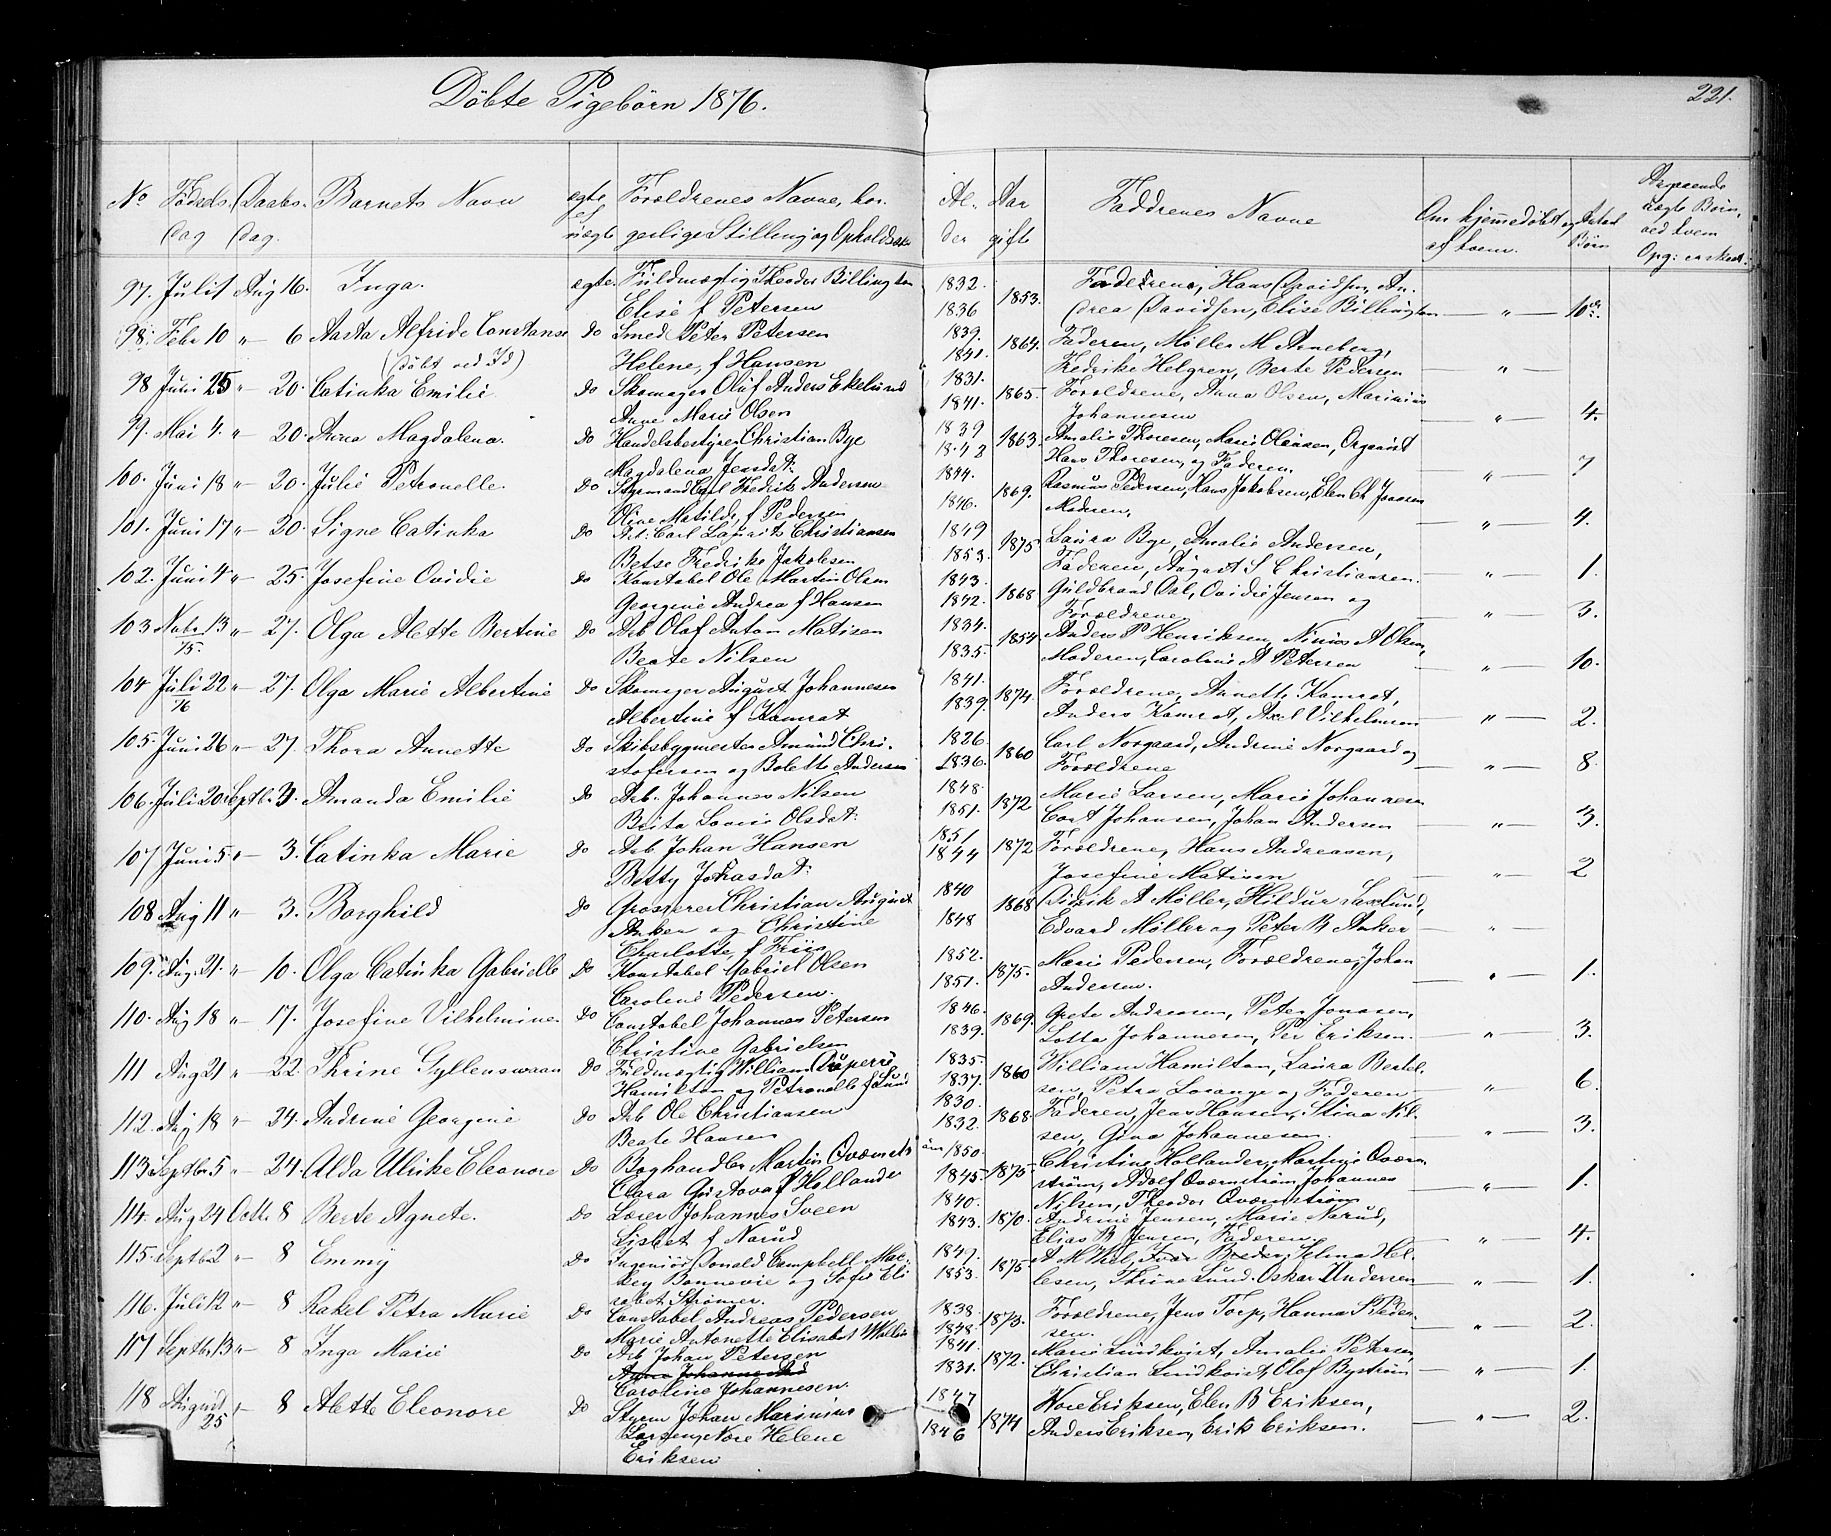 Döbte Pigebörn 1876.
221.
No Födsels Dag Daabs Dag. Barnets Navn ægte el uægt Forældrenes Navne, bor-gerlige Stilling og Opholdssted Al-der Aar gift Faddrenes Navne Om hjemmedöbt og af hvem. Antal Börn ægte Börn, ved hvem Opg:
97. Juli 1 Aug 16. Inga. ægte. Fuldmægtig Theodor Billington 1832. 1853. Forældrene, Hans Davidsen, An-
Elise f Petersen 1836 drea Davidsen, Elise Billington — " — 10
98. Febr 10 " — 6 Aasta Alfride Constanse Do Smed Peter Petersen 1839. 1864. Faderen, Møller M Arneberg,
(döbt ved Id) Helene, f Hansen 1841. Fredrike Helgren, Berte Pedersen — " —
98 Juni 25 " — 20. Catinka Emilie Do Skomager Oluf Anders Ekelund 1831. 1865. Forældrene, Anna Olsen, Marinius
Anne Marie Olsen 1841. Johannesen — " — 4.
99. Mai 4. " — 20. Anna Magdalena. Do Handelsbestyrer Christian Bye 1839 1863. Amalie Thoresen, Marie Olausen, Organist
Magdalena Jensdat: 1843 Hans Thoresen, og Faderen. — " — 7
100. Juni 18 " — 20. Julie Petronelle. Do Styrmand Carl Fredrik Andersen 1844. 1869. Rasmus Pedersen, Hans Jakobsen, Elen Ch Jansen
Oline Matilde, f Pedersen 1846. Moderen, — " — 4.
101. Juni 17 " — 20. Signe Catinka Do Arb: Carl Lauritz Christiansen 1849 1875. Laura Bye, Amalie Andersen,
Betse Fredrike Jakobsen 1853. Faderen, August S Christiansen. — " — 1.
102. Juni 4 " — 25. Josefine Ovidie Do Konstabel Ole Martin Olsen 1843. 1868 Guldbrand Dal, Ovidie Jensen og
Georgine Andrea f Hansen 1842. Forældrene — " — 3.
103 Nobr. 13 " — 27. Olga Alette Bertine Do Arb Olaf Anton Matisen 1834. 1854. Anders P Henriksen, A Olsen,
75. Beate Nilsen 1835. Moderen, Caroline A Petersen — " — 10.
104 Juli 22 " — 27. Olga Marie Albertine Do Skomager August Johannesen 1841. 1874. Forældrene, Annette Kamrat,
76 Albertine f Kamrat 1839. Anders Kamrat, Axel Vilhelmsen — " — 2.
105. Juni 26 " — 27. Thora Annette Do Skibsbygmester Amund Chri- 1826. 1860 Carl Norgaard, Andrine Norgaard og
stofersen og Bolette Andersen 1836. Forældrene — " — 8.
106. Juli 20 Septbr. 3. Amanda Emilie Do Arb. Johannes Nilsen 1848. 1872. Marie Larsen, Marie Johannesen
Brita Lovise Olsdat: 1851. Carl Johansen, Johan Andersen — " — 3.
107 Juni 5 " — 3. Catinka Marie Do Arb Johan Hansen 1851. 1872 Forældrene, Hans Andreasen,
Betty Johasdat: 1844 Josefine Matisen — " — 2
108 Aug 11 " — 3. Borghild Do Grosserer Christian August 1840 1868 Didrik A Møller, Hildur Saxlund,
Anker og Christine 1848 Edvard Møller og Peter B Anker — " —
Charlotte, f Friis
109. Aug. 21. " — 10. Olga Catinka Gabrielle Do Konstabel Gabriel Olsen 1852. 1875. Marie Pedersen, Forældrene, Johan
Caroline Pedersen. 1851. Andersen. — " — 1.
110. Aug 18 " — 17. Josefine Vilhelmine. Do Constabel Johannes Petersen 1846. 1869. Grete Andreasen, Peter Jonasen,
Christine Gabrielsen 1839. Lotta Johannesen, Per Eriksen. — " — 3.
111 Aug 21 " — 22. Thrine Gyllenswaan Do Fuldmægtig William Duperrie 1835. 1860 William Hamilton, Laura Bertel-
Hamilton og Petronelle f Lund 1837. sen, Petra Losange og Faderen — " — 6.
112. Aug 18 " — 24. Andrine Georgine Do Arb Ole Christiansen 1830. 1868. Faderen, Jens Hansen, Stina Nil-
Beate Hansen 1832. sen, Gina Johannesen. — " — 3.
113 Septbr. 5 " — 24. Alda Ulrike Eleonore Do Boghandler Martin Qværnströ 1850. 1875. Christine Hollander, Martine Qværn-
Clara Gustava f Hollander 1845. ström, Adolf Qværnström, Johannes — " — 1.
Nilsen, Theodor Qværnström
114. Aug 24 Octb. 8 Berte Agnete. Do Lærer Johannes Sveen 1840. 1870. Andrine Jensen, Marie Narud,
Lisbet f Narud 1843. Elias B Jensen, Faderen. — " — 4.
115. Septbr 2 " — 8 Emmy Do Ingeniör Donald Campbell Mac- 1847. 1875 A M Kiel, Ivar Breder, Helma Hel-
key Bonnevie og Sofie Eli- 1853. lesen, Thrine Lund. Oskar Andersen — " — 1.
sabet Strømer.
116. Juli 12 " — 8 Rakel Petra Marie Do Constabel Andreas Pedersen 1838. 1873. Forældrene, Jens Torp, Hanna S Peder-
Marie Antonette Elisabet Wallin 1848. sen. — " — 2.
117 Septbr. 13 " — 8 Inga Marie Do Arb Johan Petersen 1841. 1872. Marie Lundkvist, Amalie Petersen,
Caroline Johannesen. 1831. Christian Lundkvist, Olof Byström — " — 1.
118 August 25 " — 8 Alette Eleonore Do Styrm Johan Marinius 1847 1874 Eriksen, Elen B Eriksen,
Larsen, Nore Helene 1846 Anders Eriksen, Erik Eriksen. — " — 2.
Eriksen